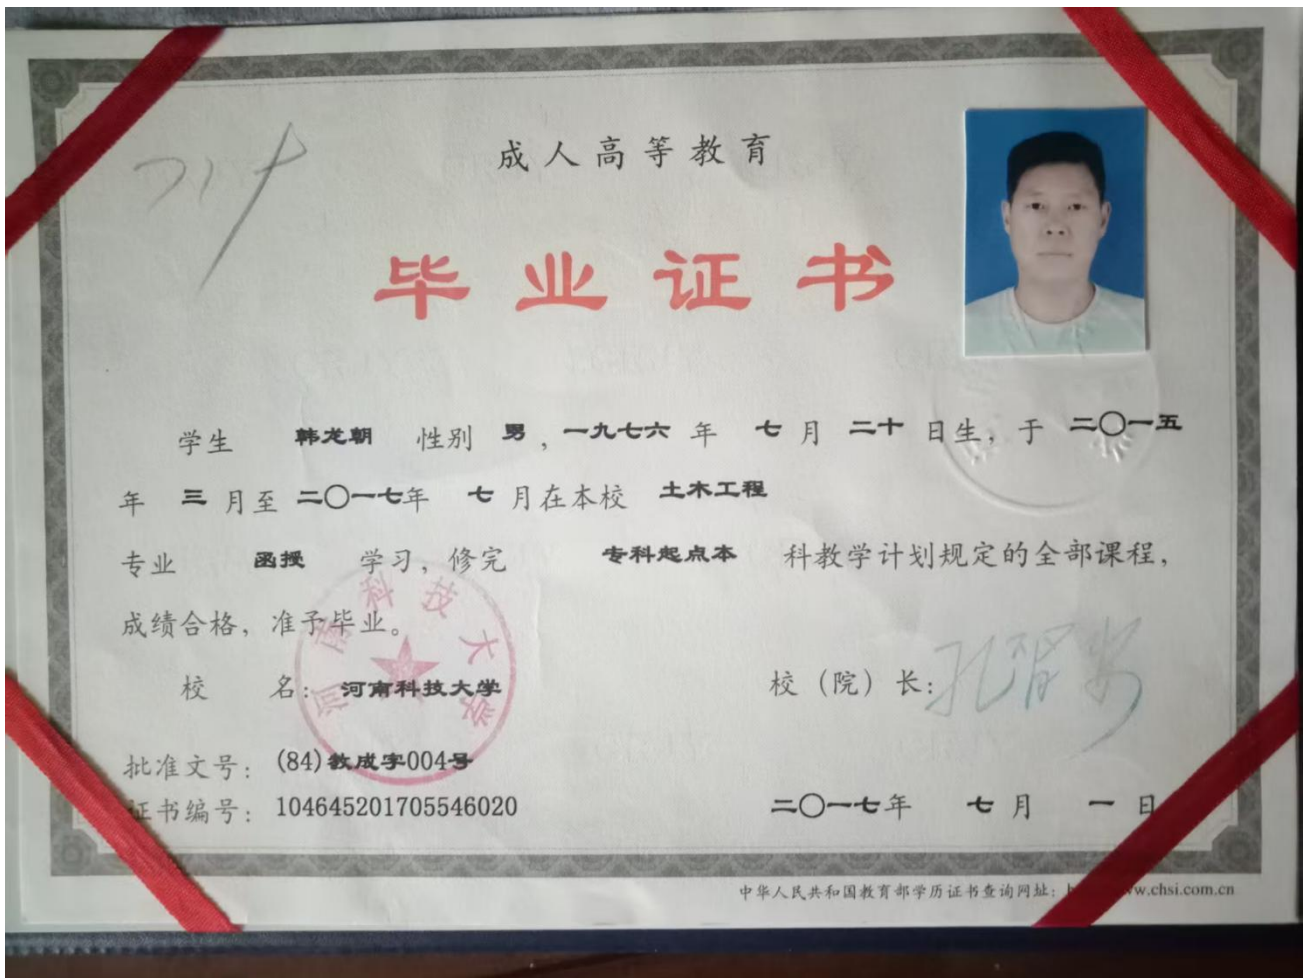 成人高等教育
毕业证书
学生 韩龙朝 性别 男，一九七六 年 七 月 二十 日生，于 二〇一五
年 三 月至 二〇一七年 七 月在本校 土木工程
专业 函授 学习，修完 专科起点本 科教学计划规定的全部课程，
成绩合格，准予毕业。
校 名：河南科技大学
校（院）长：
河南科技大学
批准文号：(84)教成字004号
证书编号：104645201705546020
二〇一七年 七 月 一 日
中华人民共和国教育部学历证书查询网址：